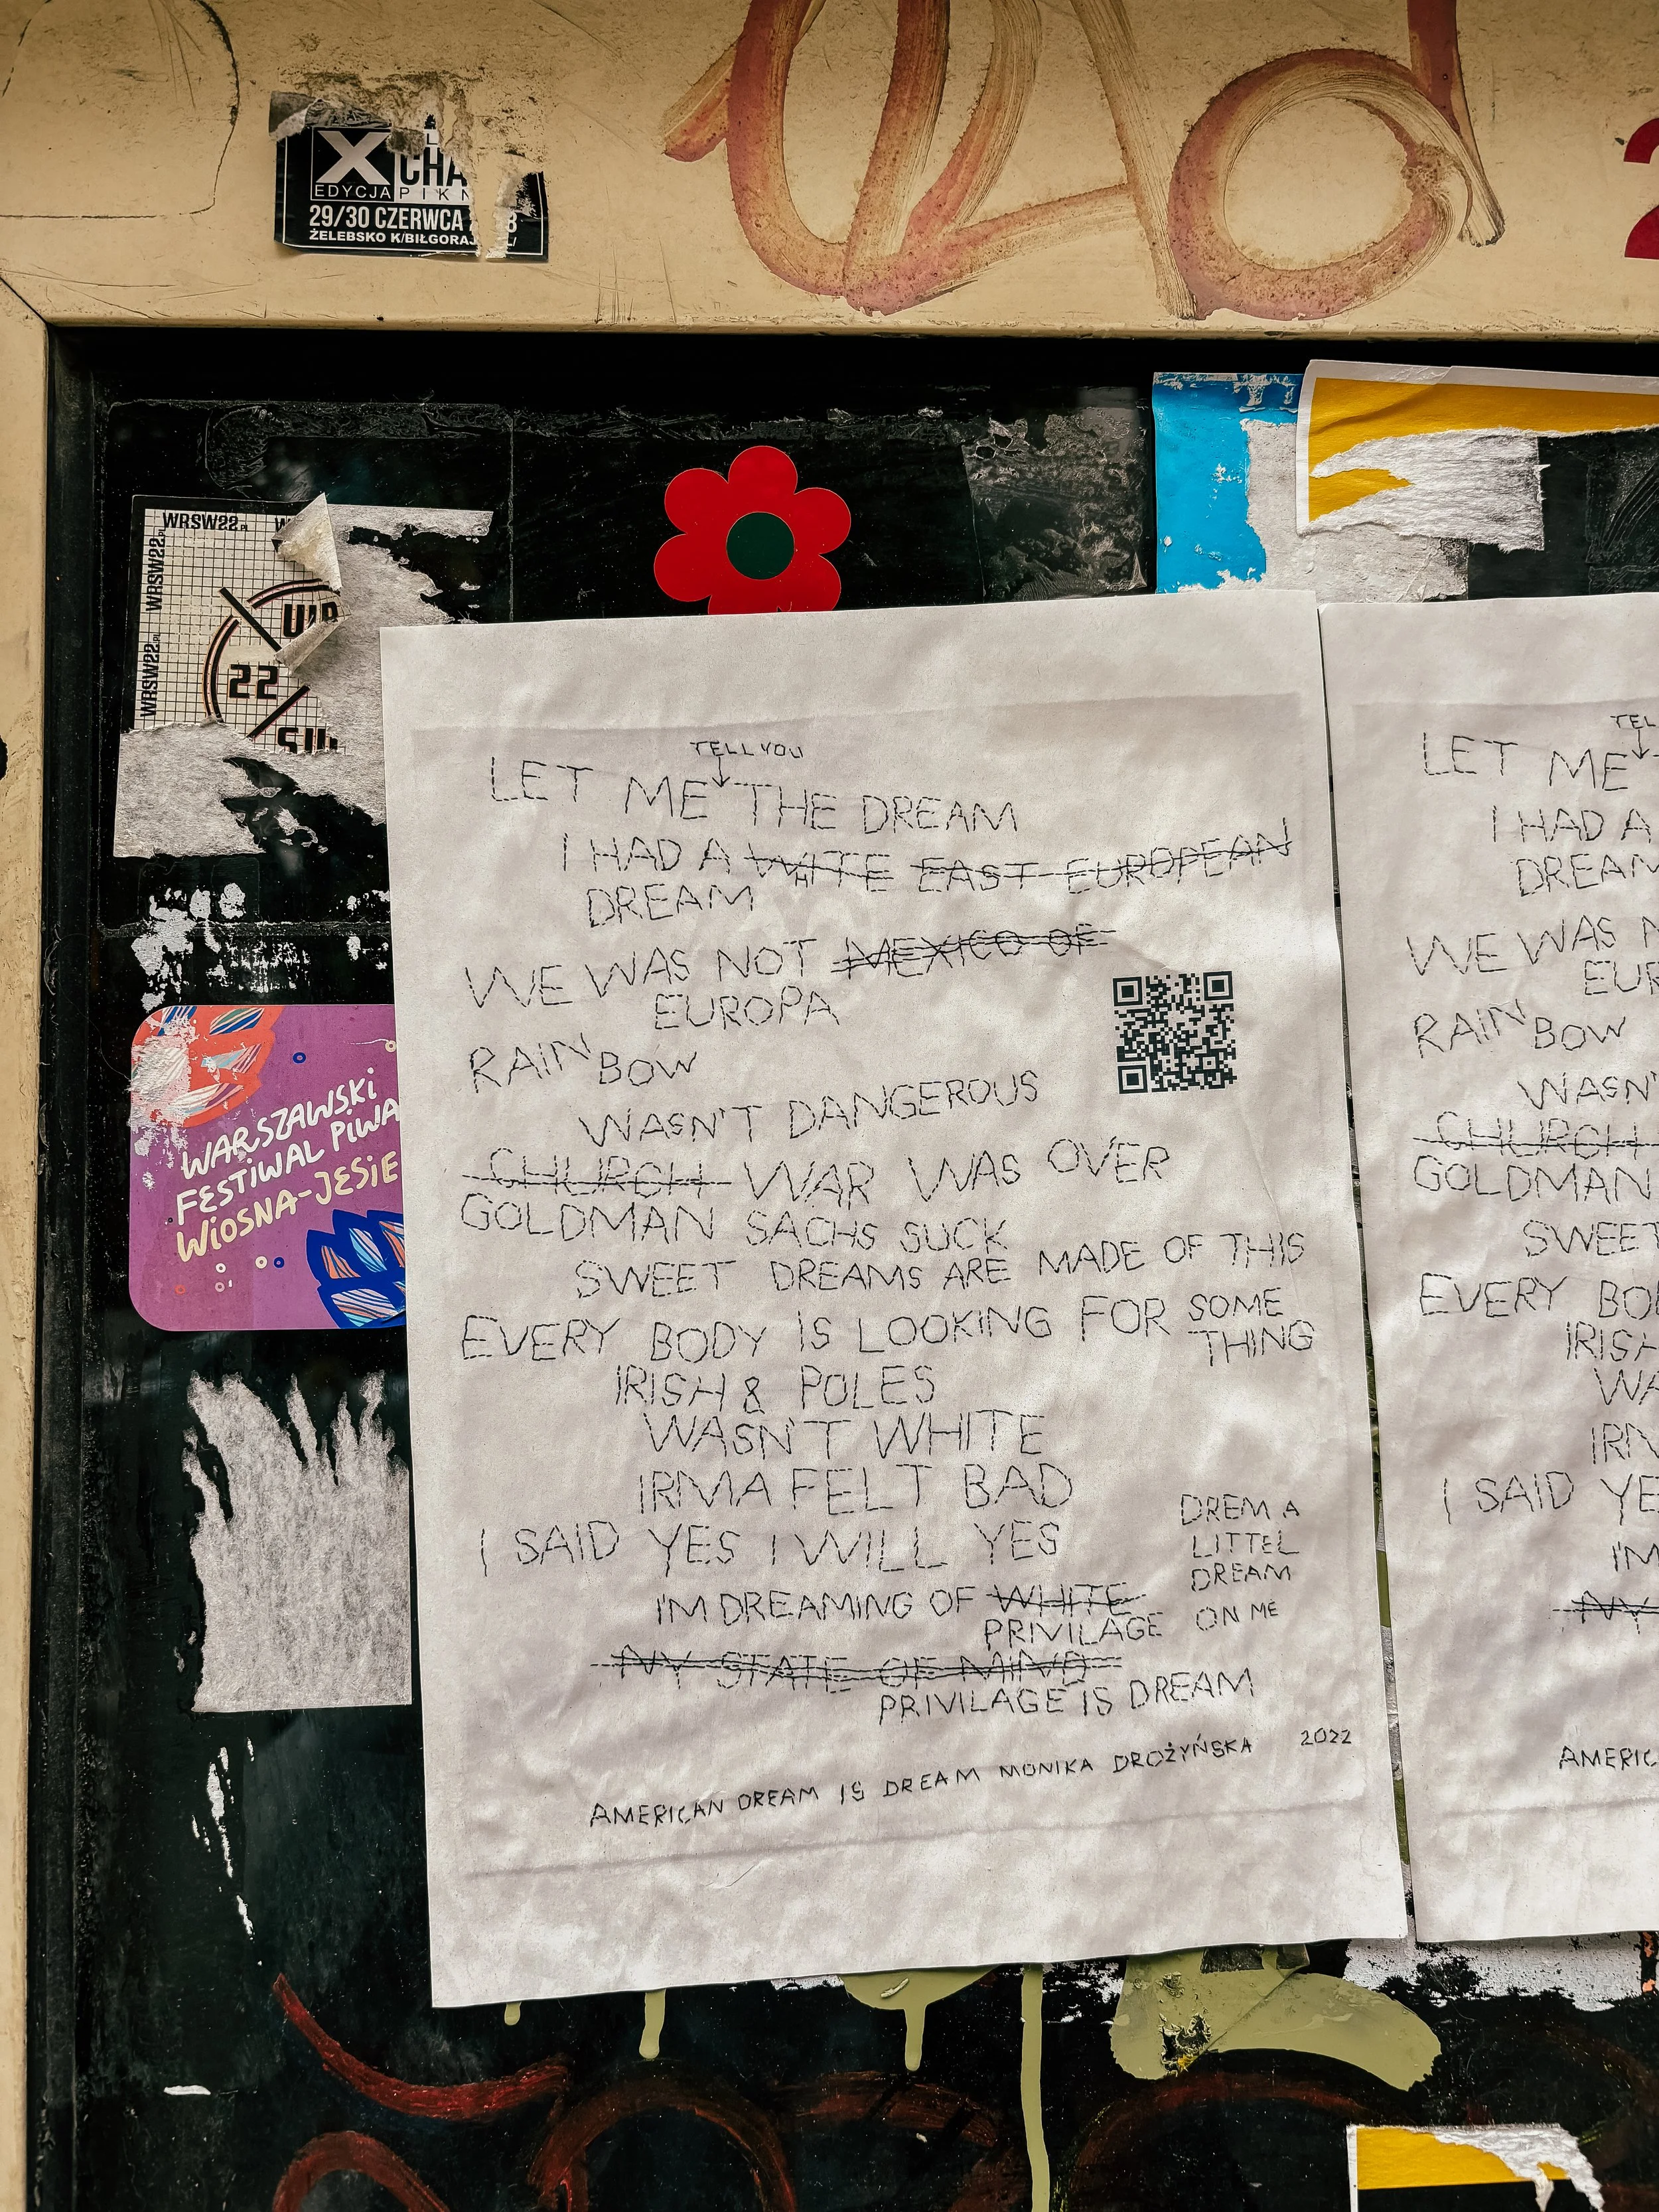 X
CHA
EDYCJA
29/30 CZERWCA
ŻELEBSKO K/BIŁGORAJ
WRSW22.PL
WRSW22.PL
WRSW22.PL
WRSW22.PL
22
WARSZAWSKI
FESTIWAL PIWA
WIOSNA-JESIE
TELL YOU
LET ME THE DREAM
I HAD A WHITE EAST EUROPEAN
DREAM
WE WAS NOT MEXICO OF
EUROPA
RAINBOW
WASN'T DANGEROUS
CHURCH WAR WAS OVER
GOLDMAN SACHS SUCK
SWEET DREAMS ARE MADE OF THIS
EVERY BODY IS LOOKING FOR SOME
THING
IRISH & POLES
WASN'T WHITE
IRMA FELT BAD
I SAID YES I WILL YES
I'M DREAMING OF WHITE
PRIVILAGE
NY STATE OF MIND
PRIVILAGE IS DREAM
DREM A
LITTEL
DREAM
ON ME
AMERICAN DREAM IS DREAM MONIKA DROŻYŃSKA 2022
TEL
LET ME
I HAD A
DREAM
WE WAS N
EUR
RAINBOW
WASN'
CHURCH
GOLDMAN
SWEET
EVERY BO
IRISH
WA
IRM
I SAID YE
I'M
NY
AMERIC